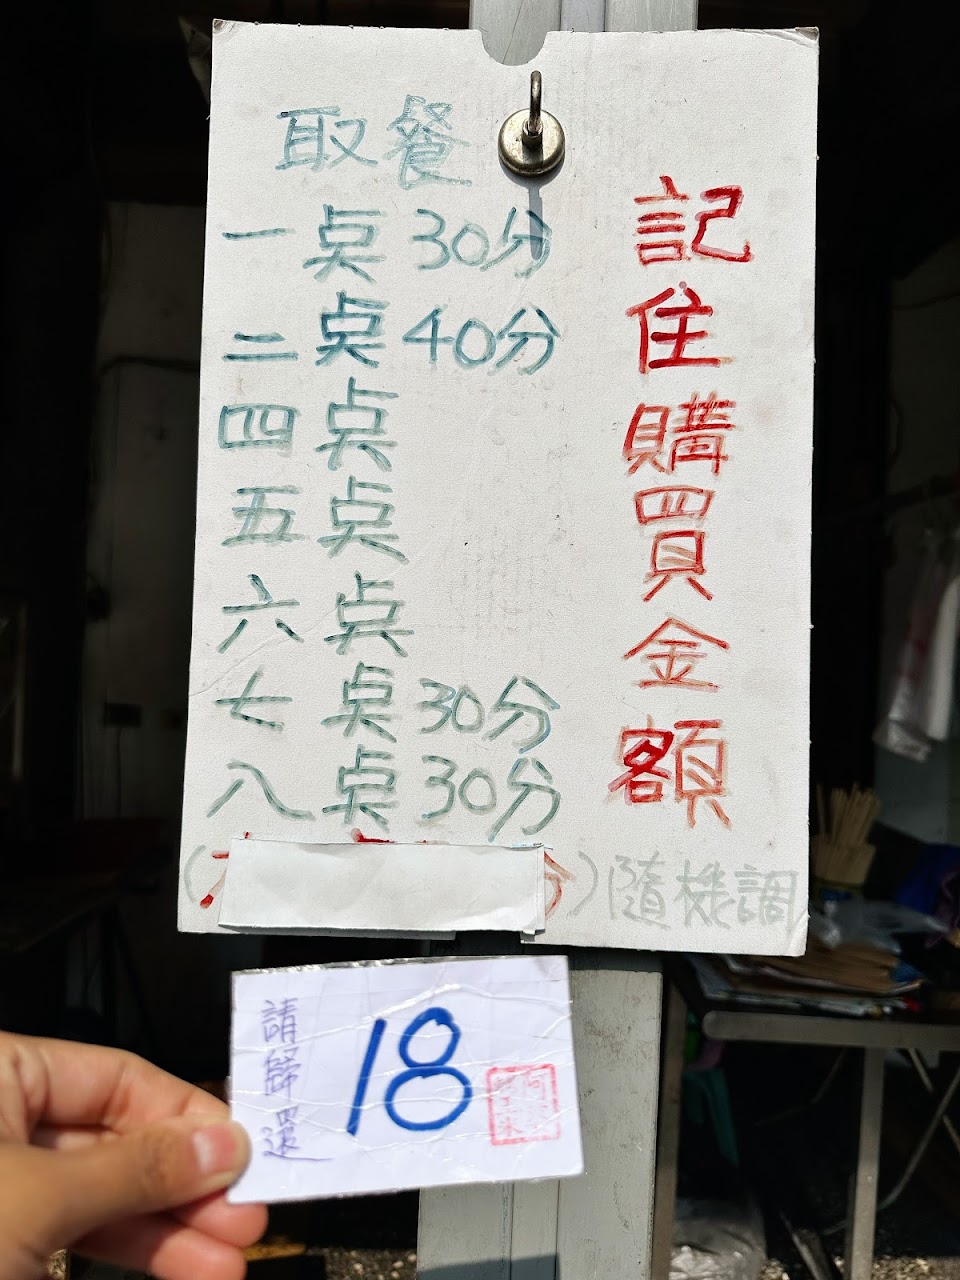 取餐
一点30分
二点40分
四点
五点
六点
七点30分
八点30分
(
分)隨機調
記住購買金額
請歸還
18